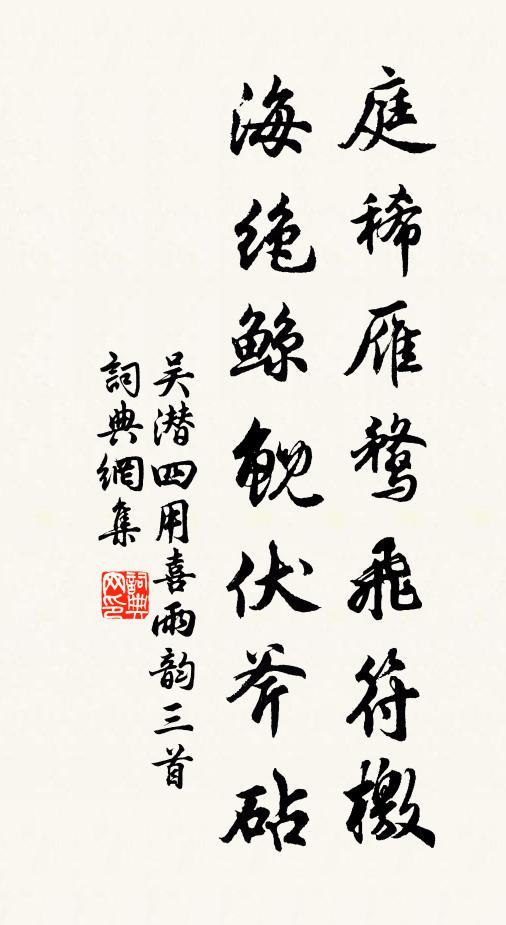 庭稀雁鶩飛符檄
海绝鲸鲵伏斧砧
吴潜四用喜雨韵三首
詞典網集
詞典网印